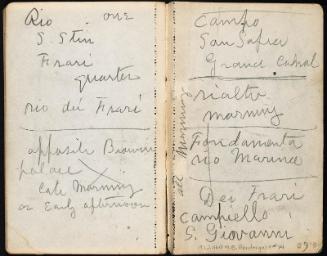 Rio one
S. Stin
Frari
quarter
rio dei Frari
opposite Browning
palace
Late Morning
or Early afternoon
Campo
San Safra
Grand Canal
rialto
morning
all morning
Fondamenta
rio Marina
Dei Frari
Campiello
S. Giovanni